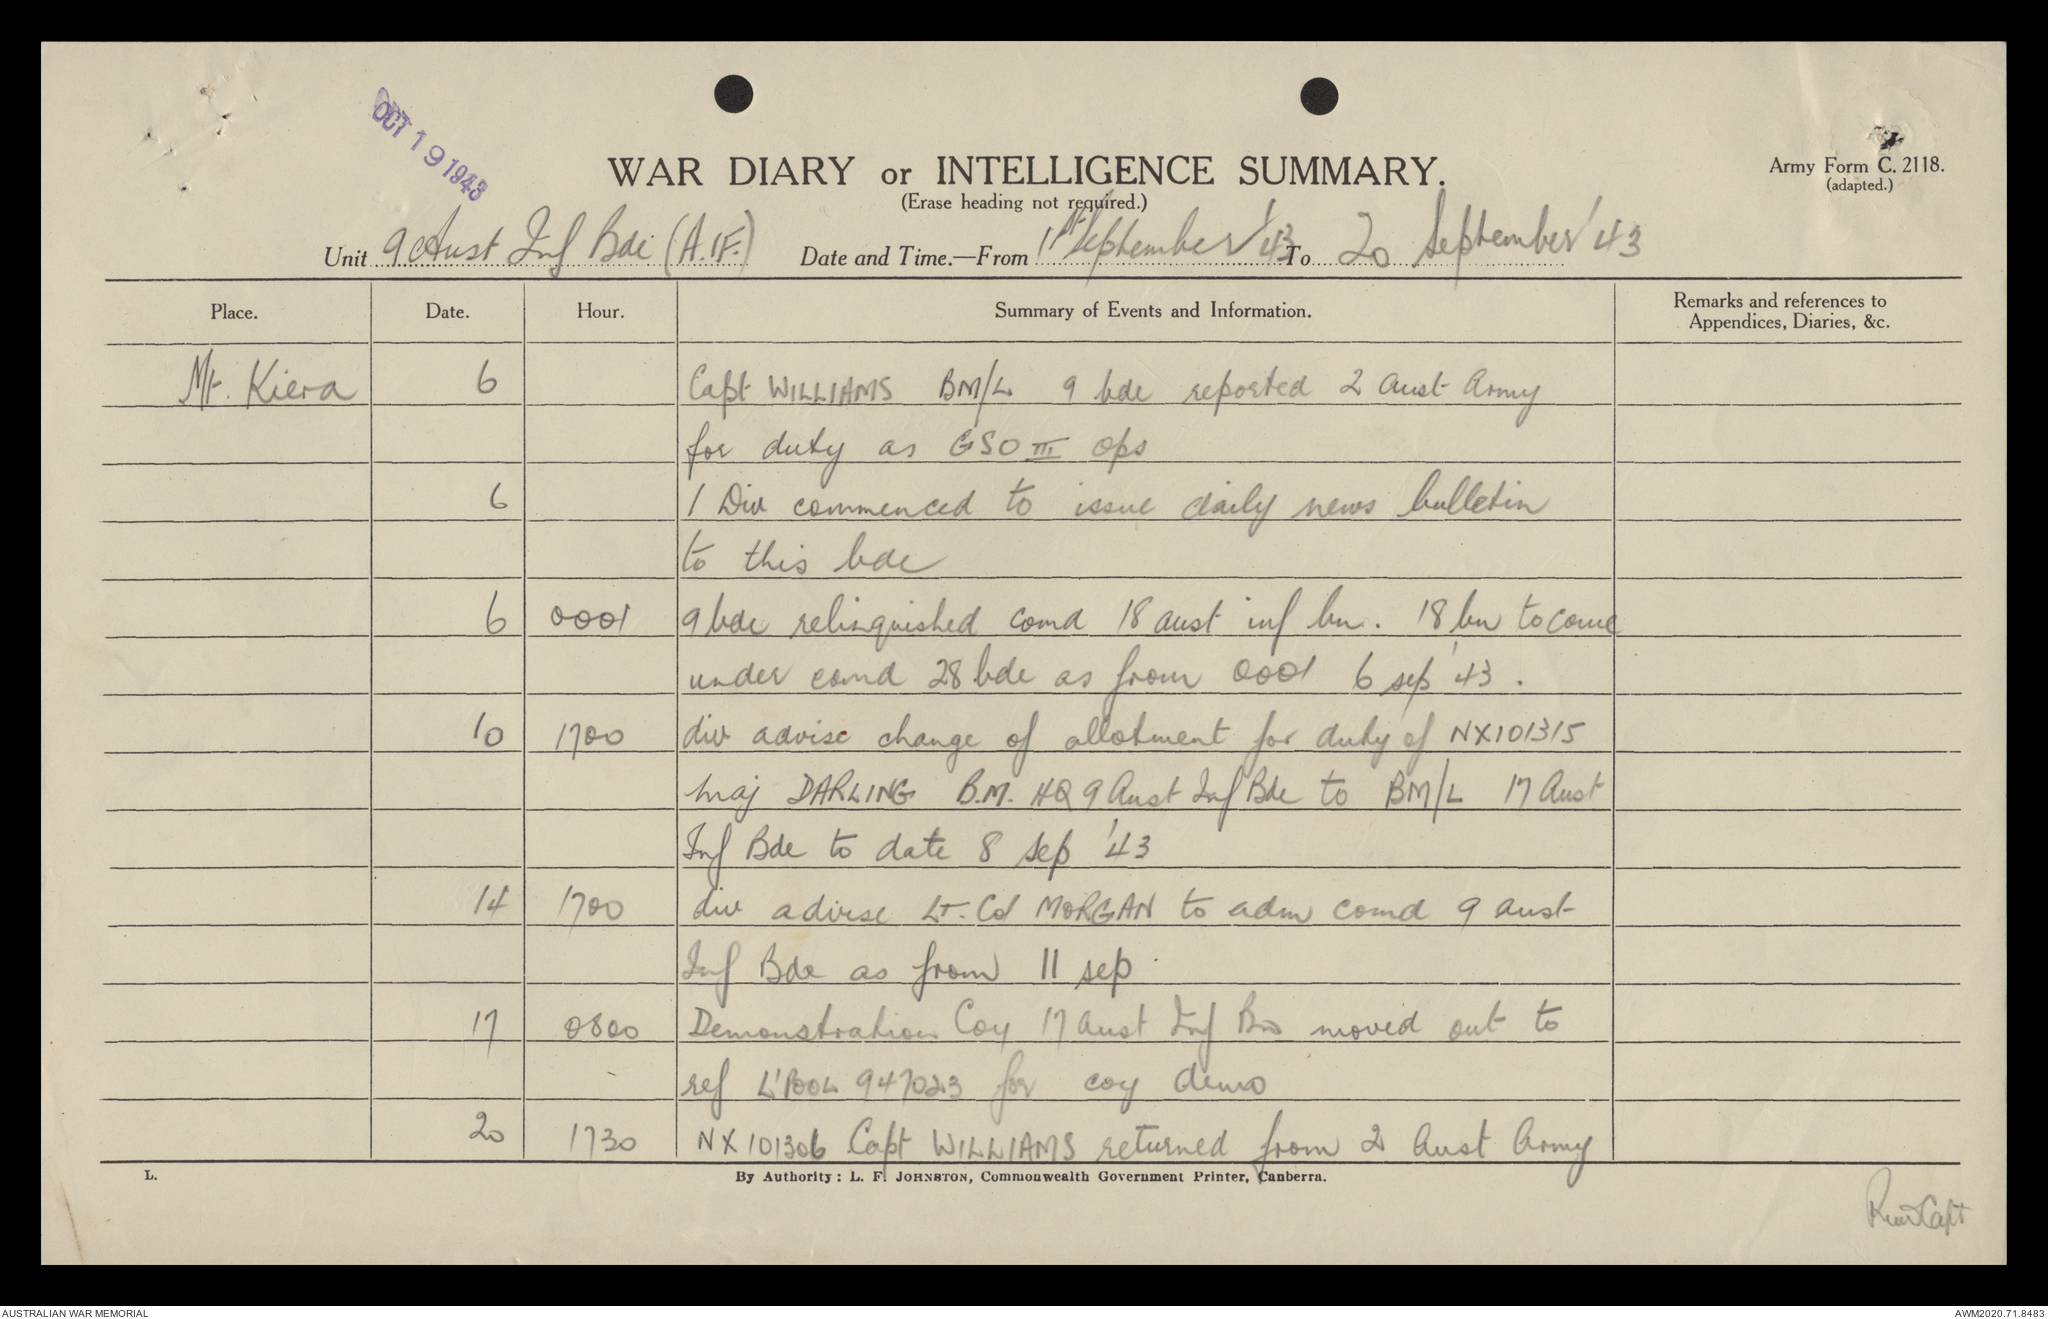 OCT 19 1943
WAR DIARY or INTELLIGENCE SUMMARY.
Army Form C. 2118.
(adapted.)
(Erase heading not required.)
Unit 9 Aust Inf Bde (A.I.F.) Date and Time.—From 1st September '43 To 20 September '43
Place. Date. Hour. Summary of Events and Information. Remarks and references to
Appendices, Diaries, &c.
Mt. Kiera 6 Capt WILLIAMS BM/L 9 bde reported 2 Aust Army
for duty as GSO III ops
6 1 Div commenced to issue daily news bulletin
to this bde
6 0001 9 bde relinquished comd 18 aust inf bn. 18 bn to come
under comd 28 bde as from 0001 6 sep '43.
10 1700 div advise change of allotment for duty of NX101315
Maj DARLING B.M. HQ 9 Aust Inf Bde to BM/L 17 Aust
Inf Bde to date 8 sep '43
14 1700 div advise Lt. Col MORGAN to adm comd 9 aust
Inf Bde as from 11 sep.
17 0800 Demonstration Coy 17 Aust Inf Bn moved out to
ref L'POOL 947023 for coy demo
20 1730 NX101306 Capt WILLIAMS returned from 2 Aust Army
L. By Authority: L. F. JOHNSTON, Commonwealth Government Printer, Canberra.
Capt
AUSTRALIAN WAR MEMORIAL AWM2020.71.8483